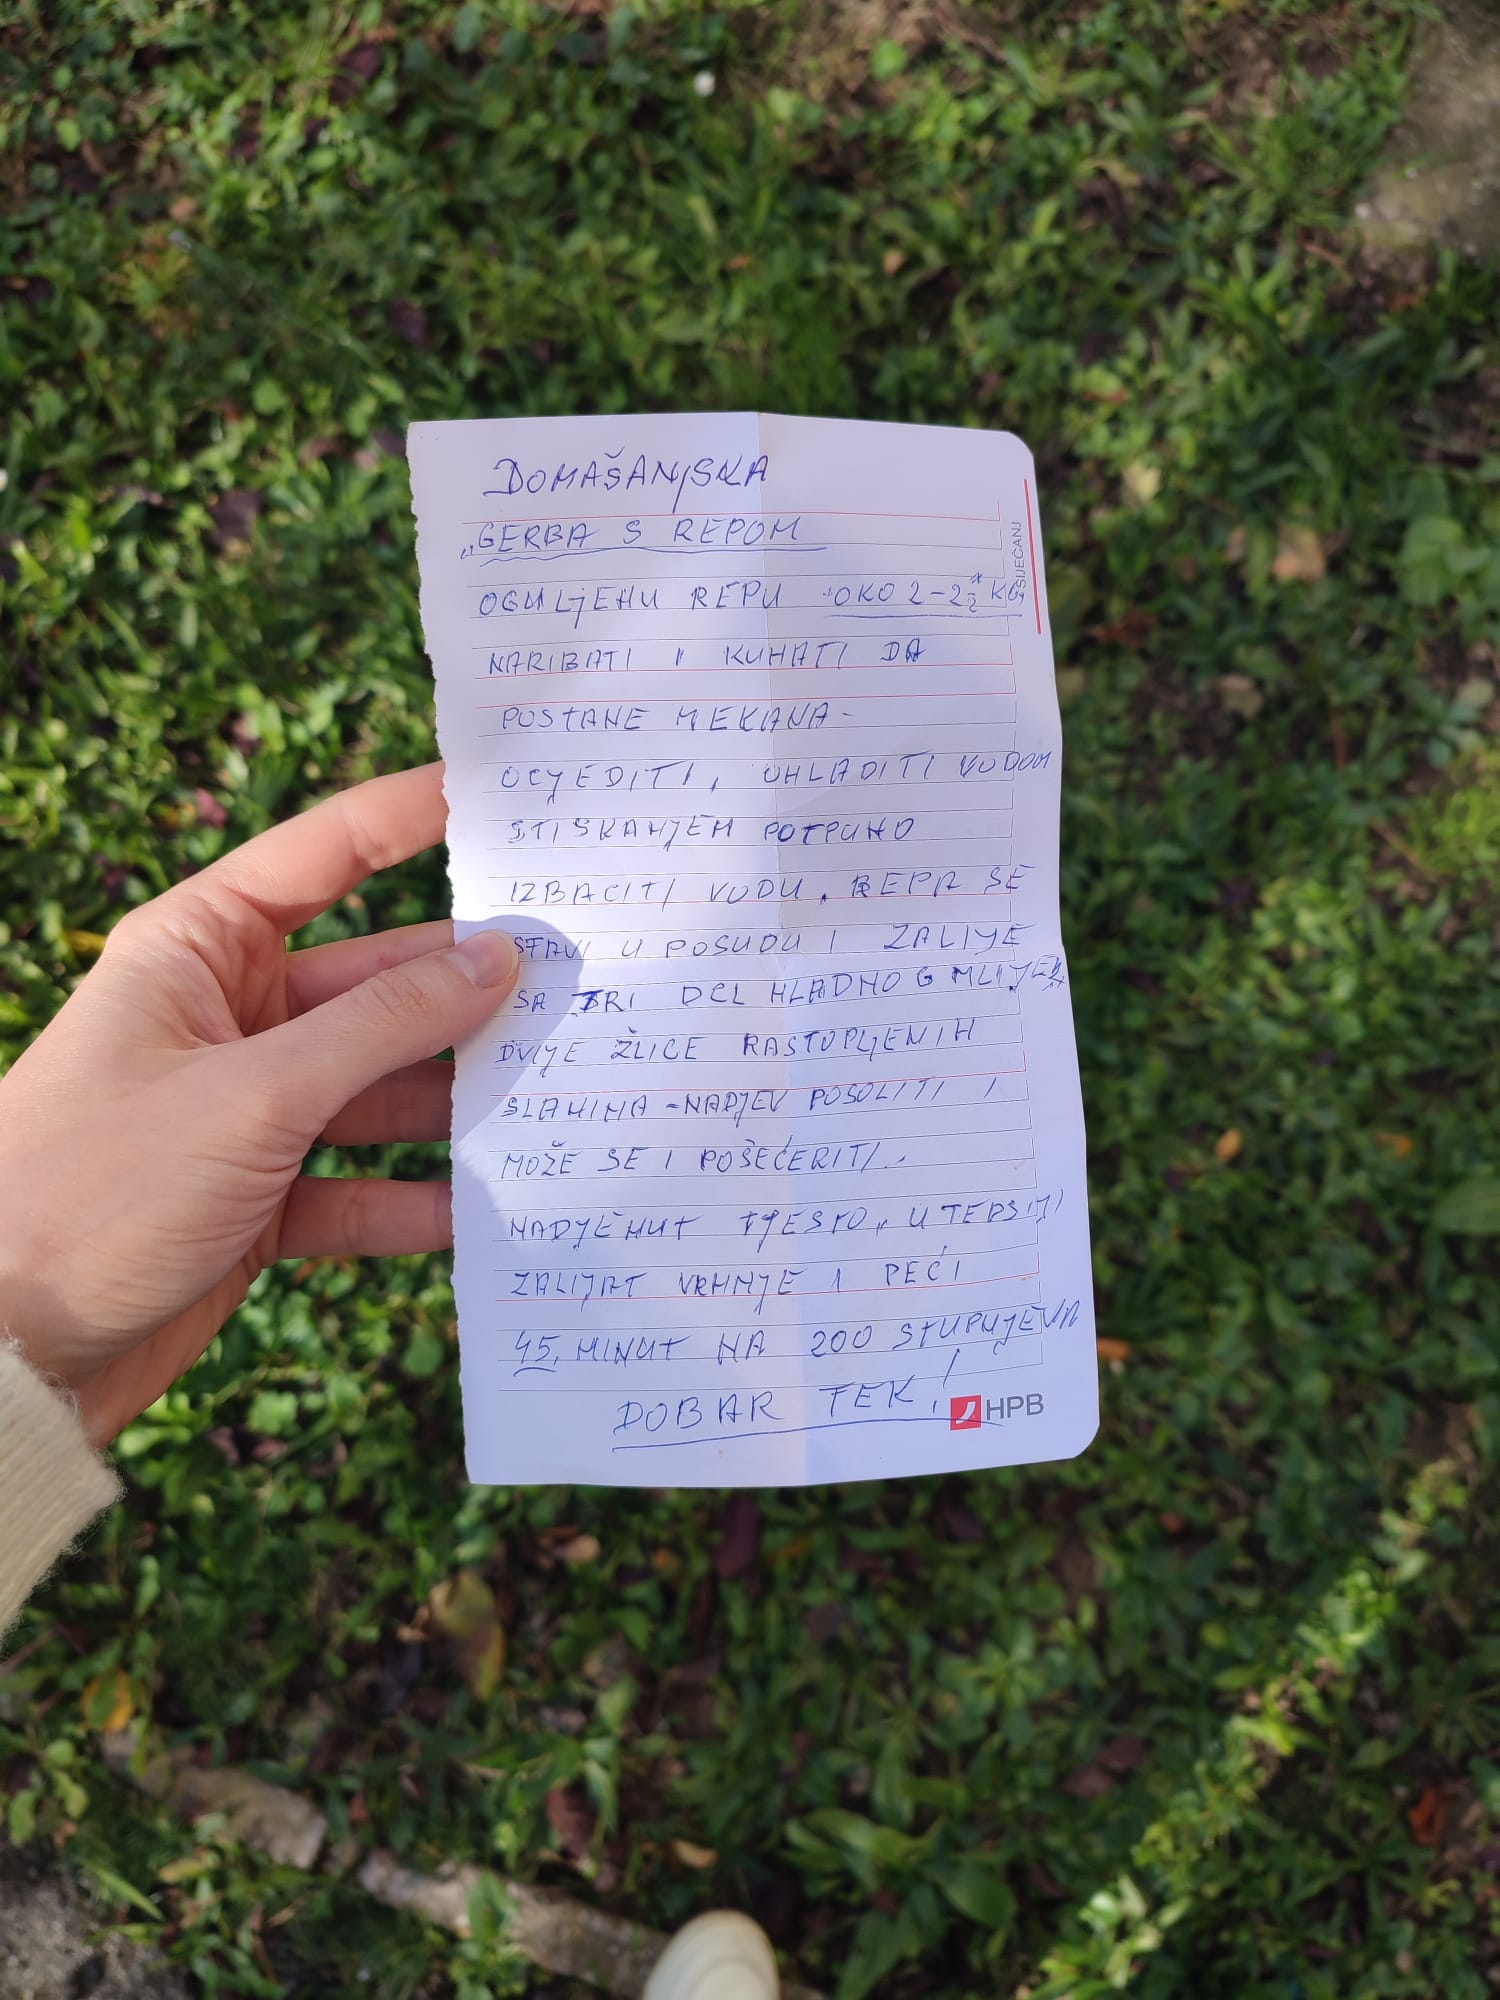 DOMAŠANJSKA
„GERBA S REPOM
OGULJENU REPU OKO 2-2½ KG,
NARIBATI I KUHATI DA
POSTANE MEKANA-
OCJEDITI, OHLADITI VODOM
STISKANJEM POTPUNO
IZBACITI VODU. REPA SE
STAVI U POSUDU I ZALIJE
SA TRI DCL HLADNOG MLIJEKA
DVIJE ŽLICE RASTOPLJENIH
SLANINA - NADJEV POSOLITI I
MOŽE SE I POŠEĆERITI.
NADJENUT TJESTO, U TEPSIJI
ZALIJAT VRHNJE I PEĆI
45, MINUT NA 200 STUPNJEVA
DOBAR TEK!
HPB
SIJEČANJ